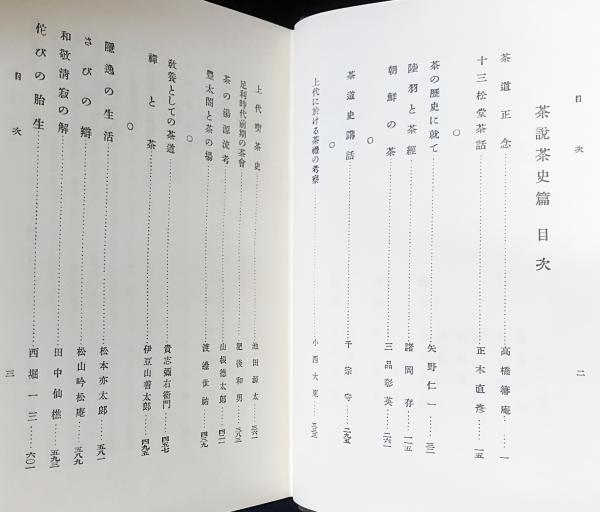 目次
二
茶說茶史篇 目次
茶道正念……高橋箒庵……一
十三松堂茶話……正木直彥……一五
○
茶の歷史に就て……矢野仁一……三一
陸羽と茶經……諸岡存……一一五
朝鮮の茶……三品彰英……二六一
○
茶道史講話……千宗守……二九五
○
上代に於ける茶禮の考察……小西大東……三三三
上代喫茶史……池田源太……三六一
足利時代前期の茶會……肥後和男……三八三
茶の湯源流考……山根德太郎……四二一
豐太閤と茶の場……渡邊世祐……四三九
○
敎養としての茶道……貴志彌右衞門……四五七
禪と茶……伊豆山善太郎……四九五
○
隱逸の生活……松本亦太郎……五八一
さびの辯……松山吟松庵……五八九
和敬清寂の解……田中仙樵……五九三
佗びの胎生……西堀一三……六〇一
目次
三